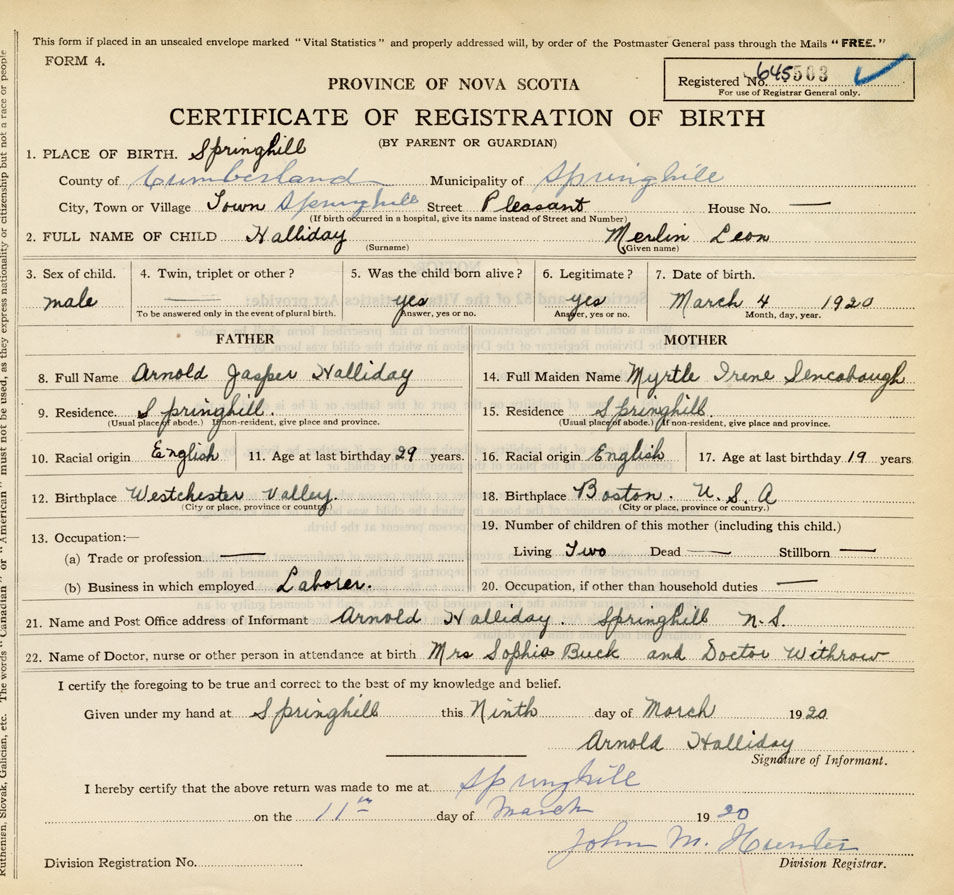 This form if placed in an unsealed envelope marked "Vital Statistics" and properly addressed will, by order of the Postmaster General pass through the Mails "FREE."
FORM 4.
Registered No. 645503
For use of Registrar General only.
PROVINCE OF NOVA SCOTIA
CERTIFICATE OF REGISTRATION OF BIRTH
(BY PARENT OR GUARDIAN)
1. PLACE OF BIRTH. Springhill
County of Cumberland Municipality of Springhill
City, Town or Village Town Springhill Street Pleasant House No. —
(If birth occurred in a hospital, give its name instead of Street and Number)
2. FULL NAME OF CHILD Halliday Merlin Leon
(Surname) (Given name)
3. Sex of child. 4. Twin, triplet or other? 5. Was the child born alive? 6. Legitimate? 7. Date of birth.
male — yes yes March 4 1920
To be answered only in the event of plural birth. Answer, yes or no. Answer, yes or no. Month, day, year.
FATHER MOTHER
8. Full Name Arnold Jasper Halliday 14. Full Maiden Name Myrtle Irene Sencabough
9. Residence. Springhill. 15. Residence Springhill
(Usual place of abode.) If non-resident, give place and province. (Usual place of abode.) If non-resident, give place and province.
10. Racial origin English 11. Age at last birthday 29 years. 16. Racial origin English 17. Age at last birthday 19 years
12. Birthplace Westchester Valley. 18. Birthplace Boston. U.S.A
(City or place, province or country.) (City or place, province or country.)
13. Occupation:— 19. Number of children of this mother (including this child.)
(a) Trade or profession — Living Two Dead — Stillborn —
(b) Business in which employed Laborer. 20. Occupation, if other than household duties —
21. Name and Post Office address of Informant Arnold Halliday. Springhill N.S.
22. Name of Doctor, nurse or other person in attendance at birth Mrs Sophia Buck and Doctor Withrow
I certify the foregoing to be true and correct to the best of my knowledge and belief.
Given under my hand at Springhill this Ninth day of March 1920
Arnold Halliday
Signature of Informant.
I hereby certify that the above return was made to me at Springhill
on the 11th day of March 1920
John M. Hunter
Division Registration No. Division Registrar.
Ruthenian, Slovak, Galician, etc. The words "Canadian" or "American" must not be used, as they express nationality or citizenship but not a race or people